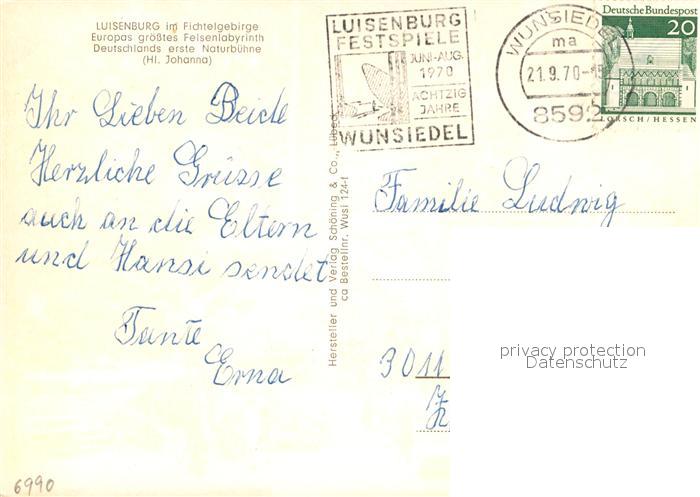 LUISENBURG im Fichtelgebirge
Europas größtes Felsenlabyrinth
Deutschlands erste Naturbühne
(Hl. Johanna)
LUISENBURG
FESTSPIELE
JUNI-AUG.
1970
ACHTZIG
JAHRE
WUNSIEDEL
WUNSIEDEL
ma
21.9.70-
8592
Deutsche Bundespost
20
LORSCH/HESSEN
Ihr Lieben Beide
Herzliche Grüsse
auch an die Eltern
und Hansi sendet
Tante
Erna
Hersteller und Verlag Schöning & Co., Lübeck
ca Bestellnr. Wusi 124-f
Familie Ludwig
3011
privacy protection
Datenschutz
6990